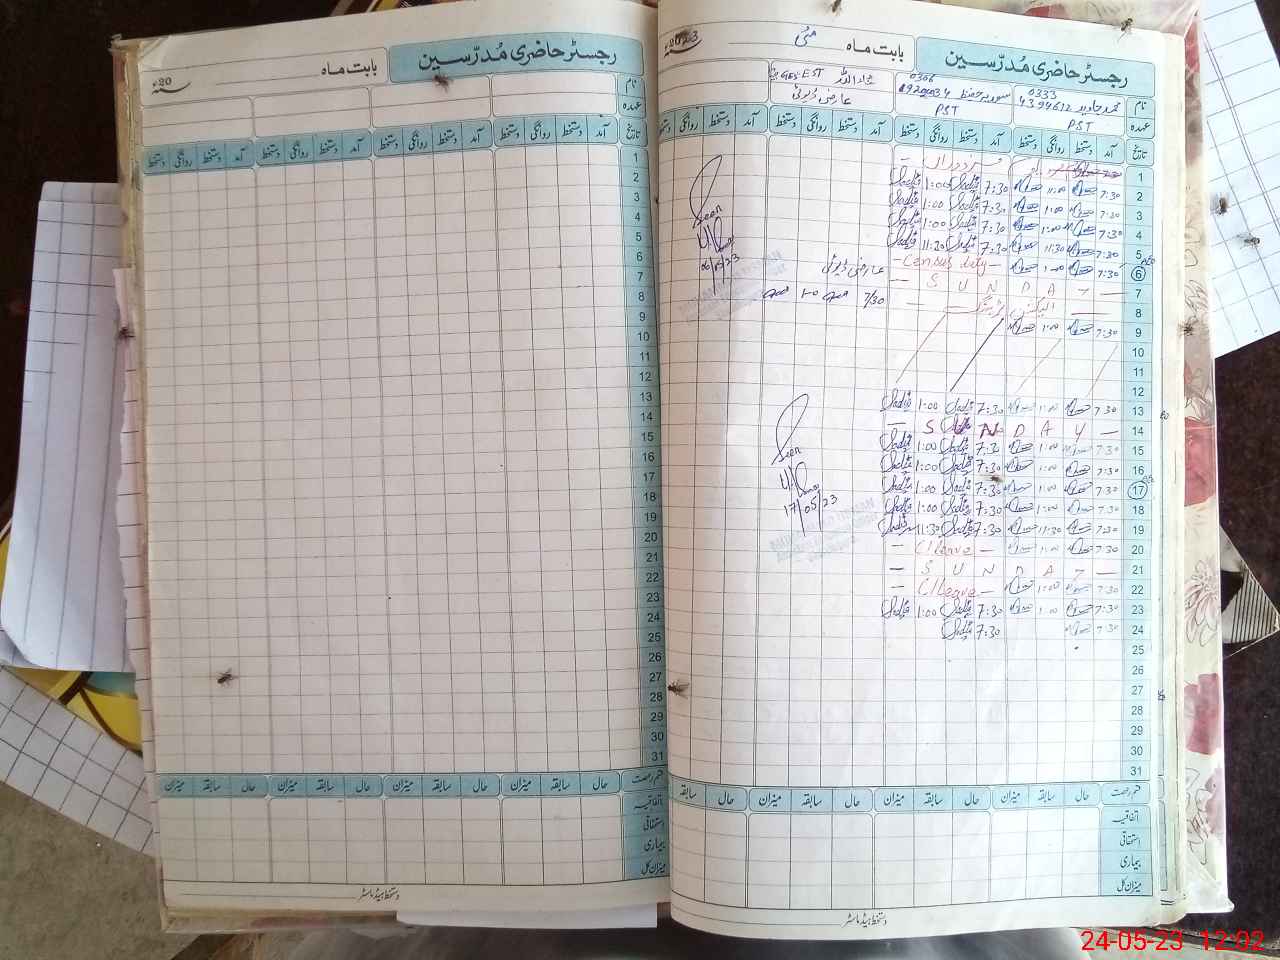 رجسٹر حاضری مُدرّسین
بابت ماہ مئی 2023ء
نام
0333
4394612
محمد جاوید
0306
سعدیہ حفیظ
GES-EST
عہدہ
PST
PST
عارضی ڈیوٹی
تاریخ آمد دستخط روانگی دستخط آمد دستخط روانگی دستخط آمد دستخط روانگی دستخط آمد دستخط روانگی
1
2 7:30 11:00 7:30 Sadia 1:00 Sadia
3 7:30 1:00 7:30 Sadia 1:00 Sadia
4 7:30 1:00 7:30 Sadia 1:00 Sadia
5 7:30 11:30 7:30 Sadia 11:20 Sadia
6 7:30 1:00 - Census duty - عارضی ڈیوٹی
7 — S U N D A Y —
8 — الیکشن ٹریننگ — 7/30 1-0
9 7:30 1:00
10
11
12
13 7:30 1:00 7:30 Sadia 1:00 Sadia
14 — S U N D A Y —
15 7:30 1:00 7:30 Sadia 1:00 Sadia
16 7:30 1:00 7:30 Sadia 1:00 Sadia
17 7:30 1:00 7:30 Sadia 1:00 Sadia
18 7:30 1:00 7:30 Sadia 1:00 Sadia
19 7:30 11:30 7:30 Sadia 11:30 Sadia
20 7:30 1:00 - C/Leave -
21 — S U N D A Y —
22 7:30 1:00 - C/Leave -
23 7:30 1:00 7:30 Sadia 1:00 Sadia
24 7:30 7:30 Sadia
25
26
27
28
29
30
31
Seen
06/05/23
Seen
17/05/23
قسم رخصت حال سابقہ میزان حال سابقہ میزان حال سابقہ میزان حال سابقہ
اتفاقیہ
استحقاقی
بیماری
میزان کل
دستخط ہیڈ ماسٹر
رجسٹر حاضری مُدرّسین
بابت ماہ
20ء
نام
عہدہ
تاریخ آمد دستخط روانگی دستخط آمد دستخط روانگی دستخط آمد دستخط روانگی دستخط آمد دستخط روانگی دستخط
1
2
3
4
5
6
7
8
9
10
11
12
13
14
15
16
17
18
19
20
21
22
23
24
25
26
27
28
29
30
31
قسم رخصت حال سابقہ میزان حال سابقہ میزان حال سابقہ میزان حال سابقہ میزان
اتفاقیہ
استحقاقی
بیماری
میزان کل
دستخط ہیڈ ماسٹر
24-05-23 12:02